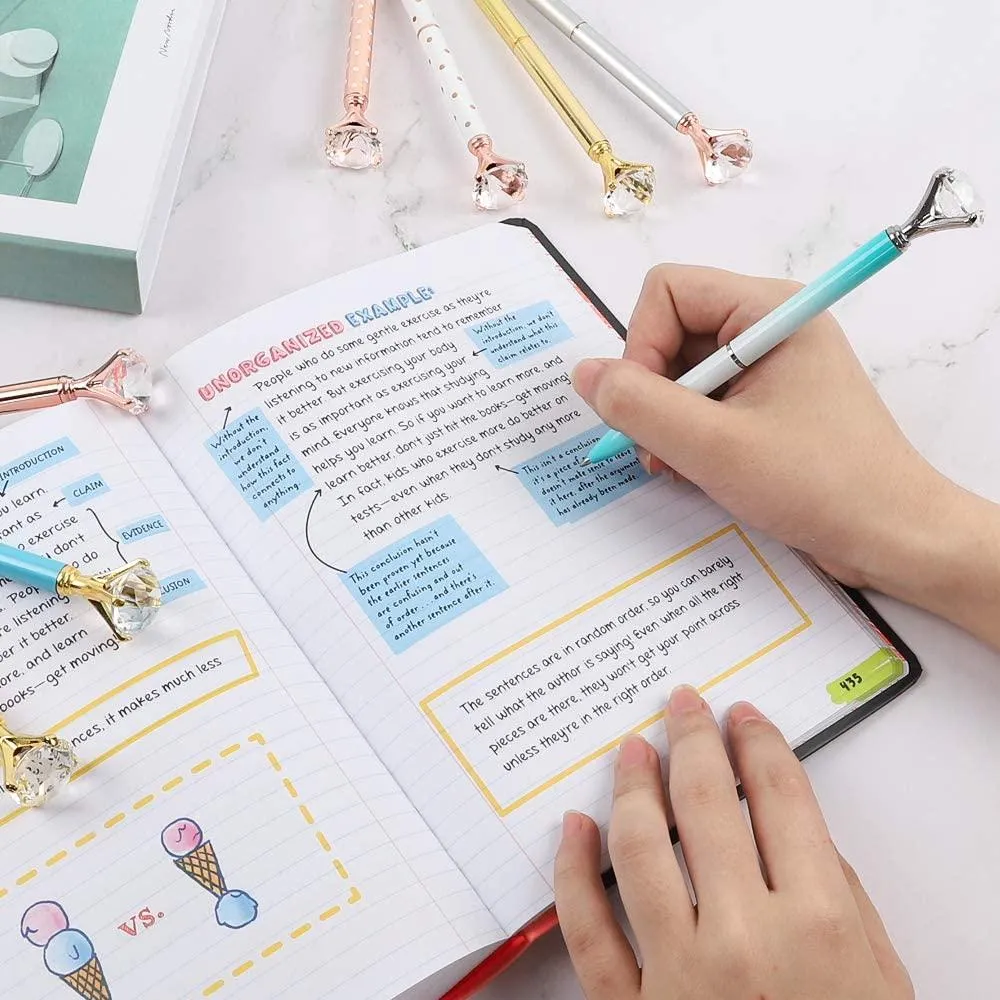 New norden
INTRODUCTION
CLAIM
EVIDENCE
USION
learn
ant as
exercise
don't
do
listening
it better.
ore, and learn
books—get moving!
nces, it makes much less
VS.
UNORGANIZED EXAMPLE:
People who do some gentle exercise as they're
listening to new information tend to remember
it better. But exercising your body
is as important as exercising your
mind. Everyone knows that studying
helps you learn. So if you want to learn more, and
learn better, don't just hit the books—get moving
In fact, kids who exercise more do better on
tests—even when they don't study any more
than other kids.
Without the
introduction, we don't
understand what this
claim relates to.
Without the
introduction
we don't
understand
how this fact
connects to
anything.
This isn't a conclusion
it's a piece of
doesn't make sense to
it here, after the argument
has already been made.
This conclusion hasn't
been proven yet because
the earlier sentences
are confusing and out
of order... and there's
another sentence after it.
The sentences are in random order, so you can barely
tell what the author is saying! Even when all the right
pieces are there, they won't get your point across
unless they're in the right order.
435